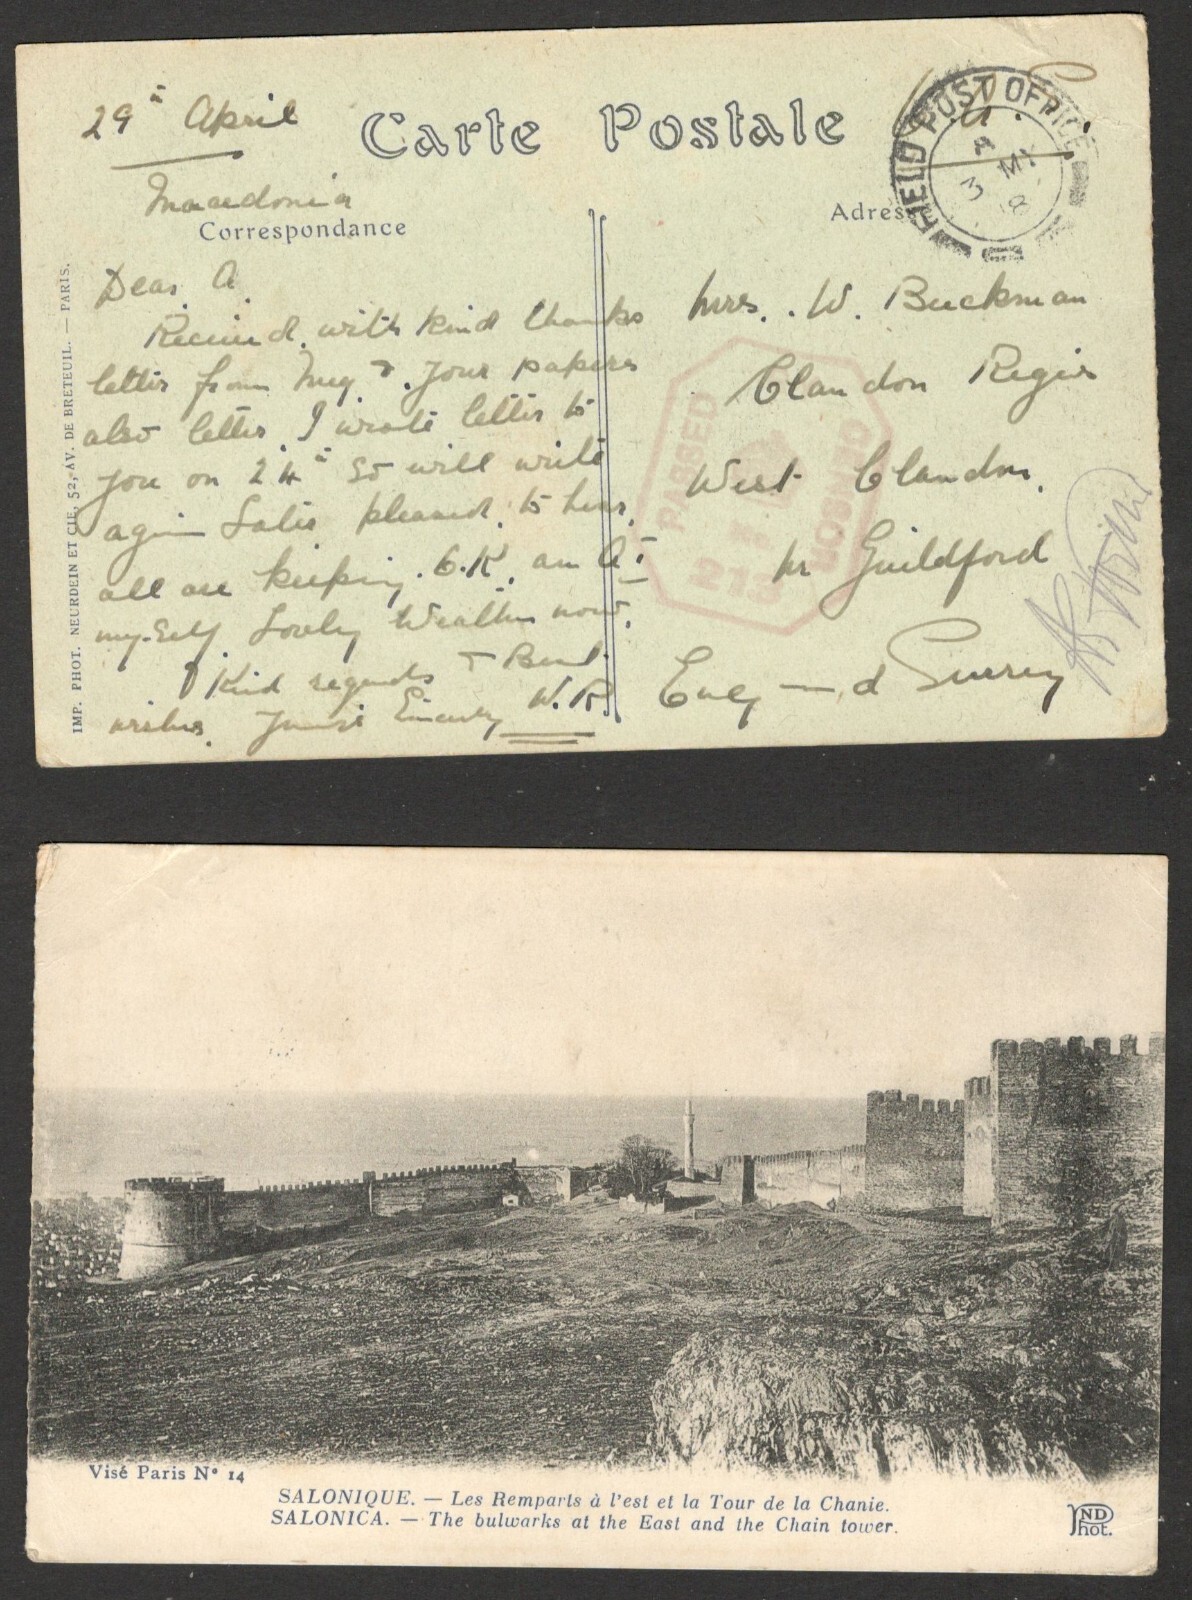 29th April
Macedonia
Carte Postale
Correspondance
Adres
FIELD POST OFFICE
A
3 MY
8
IMP. PHOT. NEURDEIN ET CIE, 52, AV. DE BRETEUIL. — PARIS.
Dear A
Received with kind thanks
letter from & your papers
also letter I wrote letter to
you on 24th so will write
again Later pleased to hear
all are keeping O.K. am A1
my-self Lovely Weather now.
Kind regards & Best
wishes. Yours Sincerely W.R.
Mrs. W. Buckman
Clandon Regis
West Clandon
Nr Guildford
England Surrey
PASSED
CENSOR
213
Visé Paris N° 14
SALONIQUE. — Les Remparts à l'est et la Tour de la Chanie.
SALONICA. — The bulwarks at the East and the Chain tower.
ND
Phot.